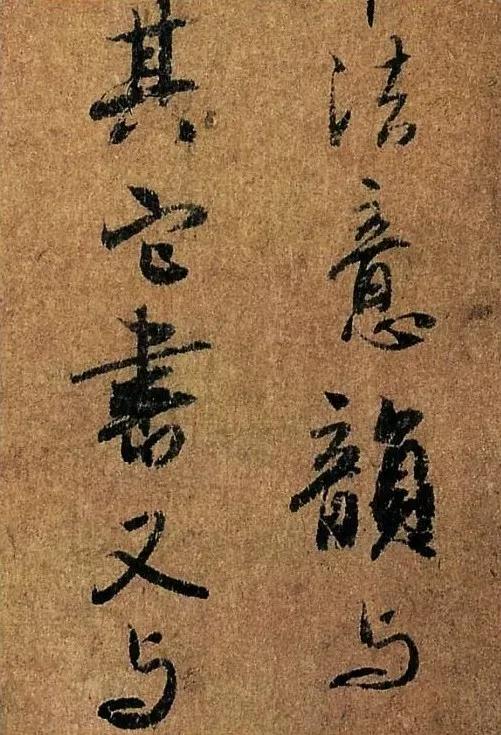 法意韻与
其它書又与